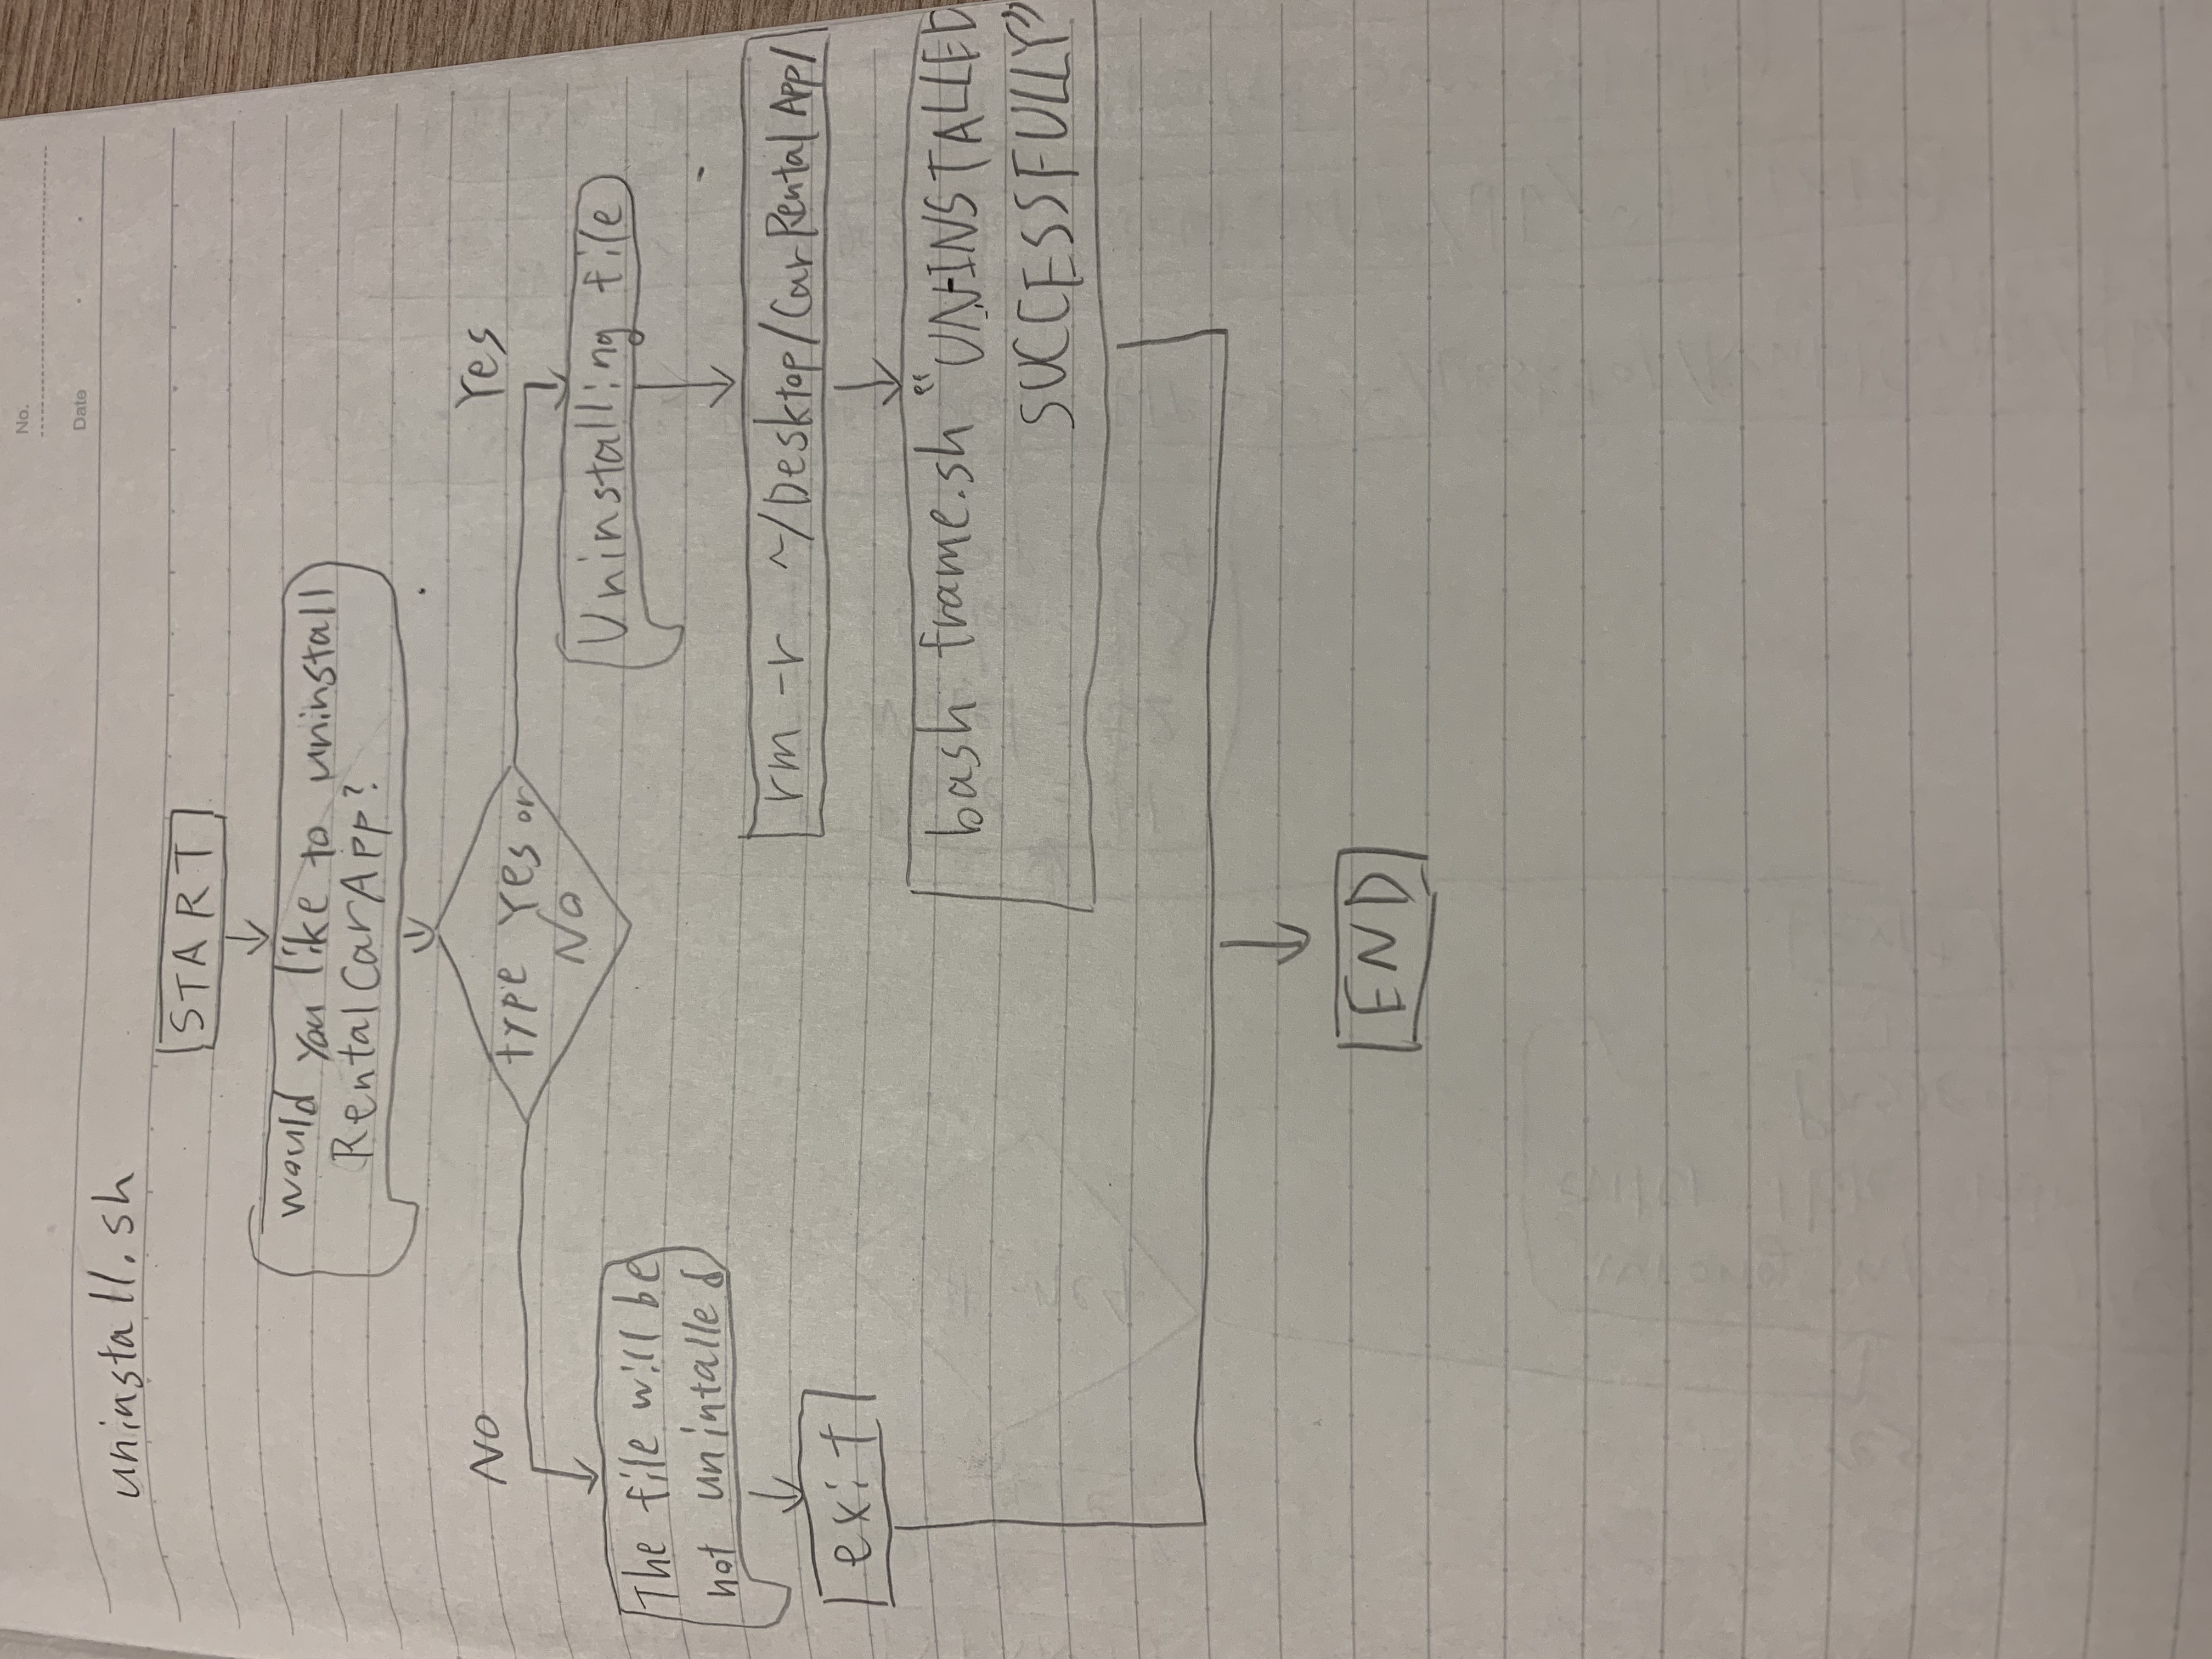 No.
Date
uninstall.sh
START
would you like to uninstall
RentalCarApp?
type Yes or
No
No
Yes
The file will be
not unintalled
exit
Uninstalling file
rm -r ~/Desktop/CarRentalApp/
bash frame.sh "UNINSTALLED
SUCCESSFULLY"
END